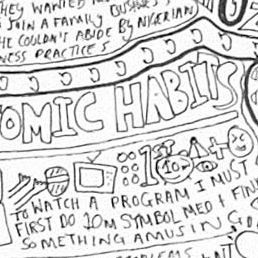 THEY WANTED
JOIN A FAMILY BUSINESS
HE COULDN'T ABIDE BY NIGERIAN
NESS PRACTICES
OMIC HABITS
1ST 10m +
TO WATCH A PROGRAM I MUST
FIRST DO 10M SYMBOL MED + FIND
SOMETHING AMUSING